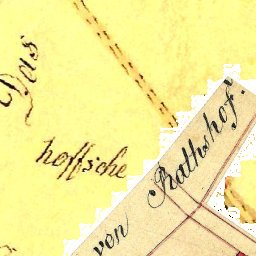 Das
hoffsche
von Rathshof.